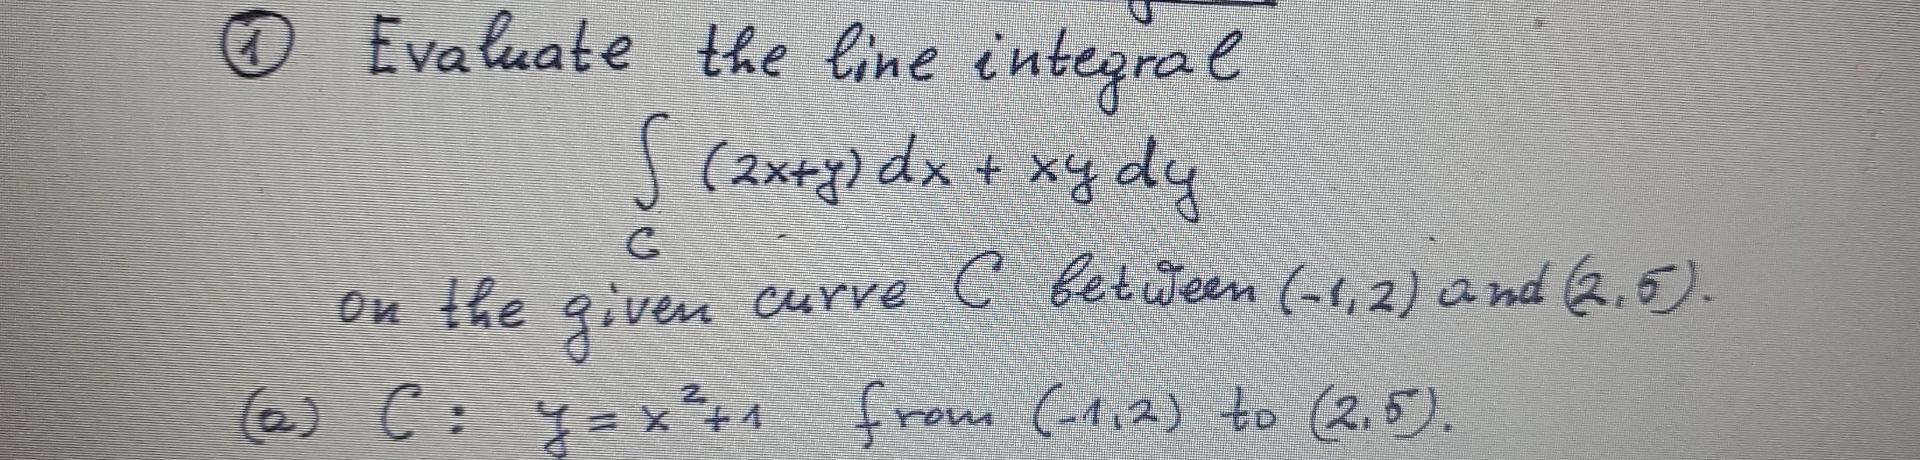 ① Evaluate the line integral
∫ (2x+y) dx + xy dy
C
on the given curve C between (-1,2) and (2,5).
(a) C: y = x²+1 from (-1,2) to (2,5).